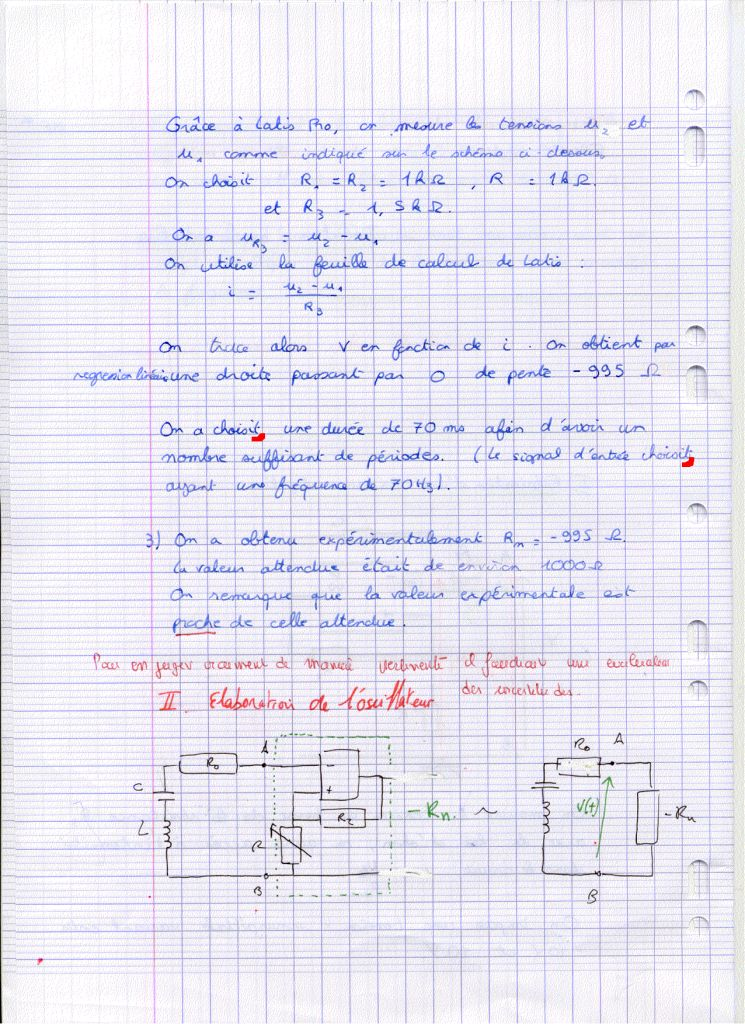 Grâce à Latis Pro, on mesure les tensions u₂ et
u₁ comme indiqué sur le schéma ci-dessous.
On choisit R₁ = R₂ = 1kΩ, R = 1kΩ.
et R₃ = 1,5kΩ.
On a u_R₃ = u₂ - u₁
On utilise la feuille de calcul de Latis :
i = (u₂ - u₁) / R₃
On trace alors V en fonction de i. On obtient par
regression linéaire une droite passant par O de pente -995 Ω
On a choisit une durée de 70 ms afin d'avoir un
nombre suffisant de périodes. (Le signal d'entrée choisit
ayant une fréquence de 70Hz).
3) On a obtenu expérimentalement Rn = -995 Ω.
La valeur attendue était de environ 1000Ω
On remarque que la valeur expérimentale est
proche de celle attendue.
Pour en juger vraiment de manière pertinente il faudrait une évaluation
des incertitudes.
II. Elaboration de l'oscillateur
R₀ A
C
L
-
+
R₂
R
B
-Rn. ~
R₀ A
V(t)
-Rn
B